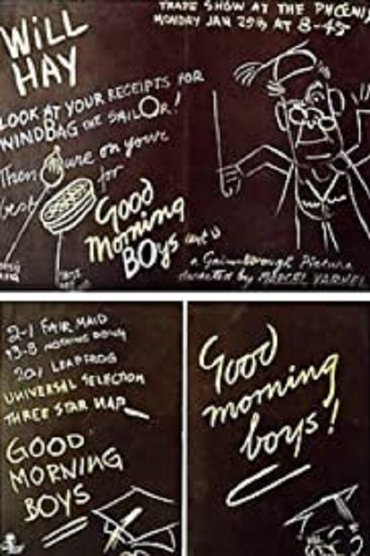 TRADE SHOW AT THE PHOENIX
MONDAY JAN 25th AT 8-45
WiLL
HAY
LOOK AT YOUR RECEIPTS FOR
WINDBAG THE SAILOR!
Then on your
best for
Good
Morning
BOYS
a Gainsborough Picture
directed by MARCEL VARNEL
2-1 FAIR MAID
20-1 LEAPFROG
UNIVERSAL SELECTION
THREE STAR NAP
GOOD
MORNING
BOYS
Good
morning
boys!